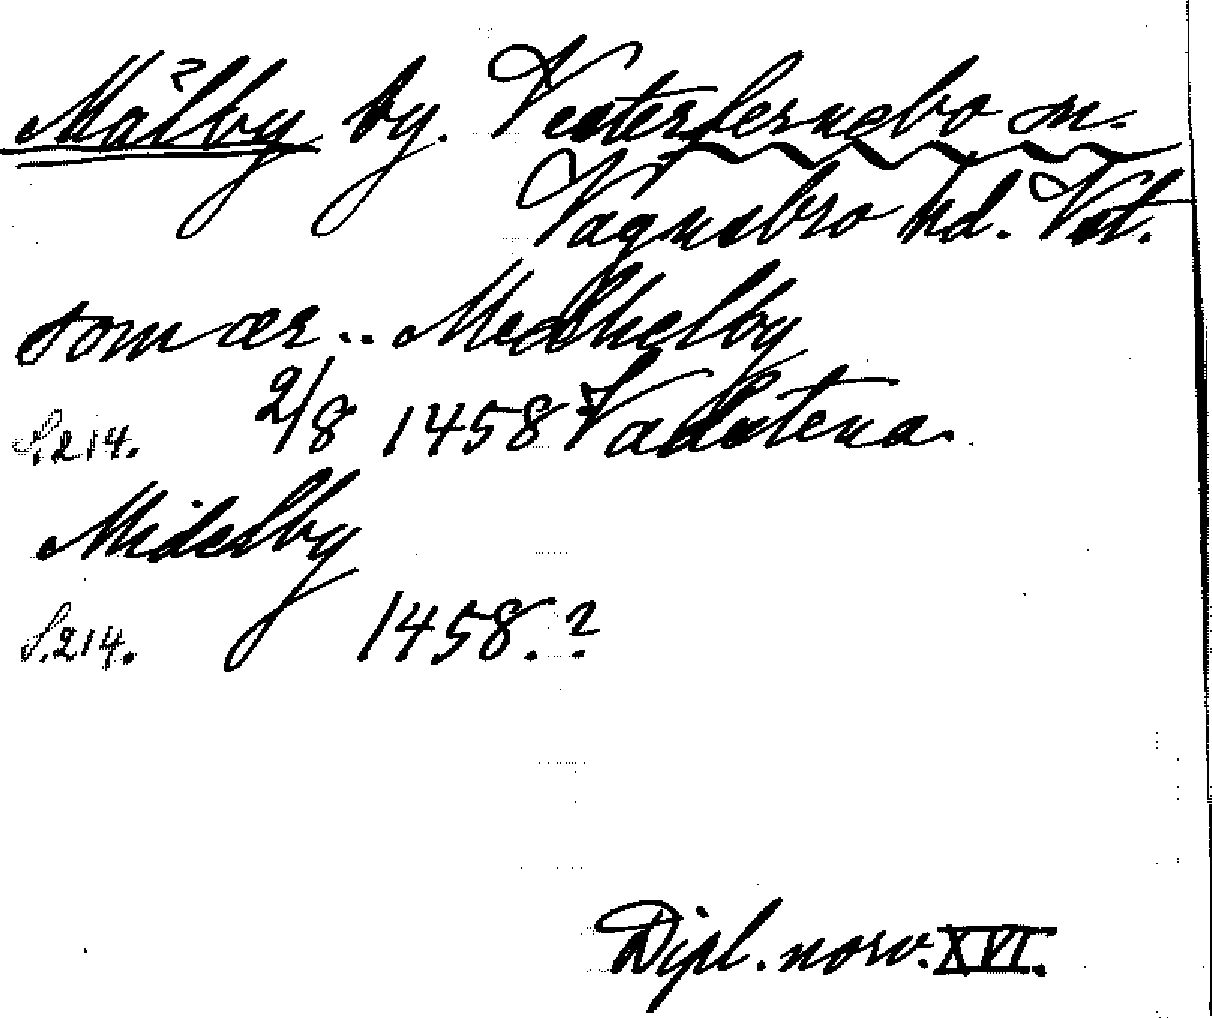 Målby by. Vesterfernebo sn.
Vagnsbro hd. Vst.
som ær .. Medhelby
S. 214. 2/8 1458 Vadstena.
Midelby
S. 214. 1458.?
Dipl. norv. XVI.